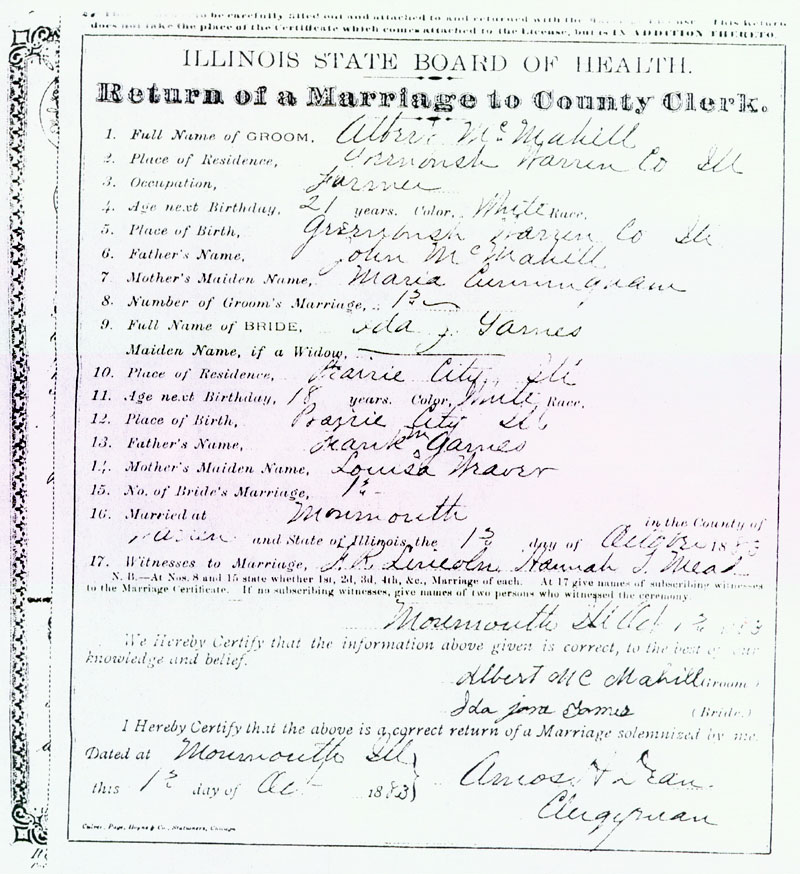 to be carefully filled out and attached to and returned with the Marriage License. This Return
does not take the place of the Certificate which comes attached to the License, but is IN ADDITION THERETO.
ILLINOIS STATE BOARD OF HEALTH.
Return of a Marriage to County Clerk.
1. Full Name of GROOM, Albert McMahill
2. Place of Residence, Greenbush Warren Co Ill
3. Occupation, Farmer
4. Age next Birthday, 21 years. Color, White Race,
5. Place of Birth, Greenbush Warren Co Ill
6. Father's Name, John McMahill
7. Mother's Maiden Name, Maria Cunningham
8. Number of Groom's Marriage, 1st
9. Full Name of BRIDE, Ida J.
Maiden Name, if a Widow,
10. Place of Residence, Prairie City, Ill
11. Age next Birthday, 18 years. Color, White Race,
12. Place of Birth, Prairie City Ill
13. Father's Name, Frank M
14. Mother's Maiden Name, Louisa Weaver
15. No. of Bride's Marriage, 1st
16. Married at Monmouth in the County of
Warren and State of Illinois, the 1st day of 1883
17. Witnesses to Marriage, Lincoln Hannah Mead
N. B.—At Nos. 8 and 15 state whether 1st, 2d, 3d, 4th, &c., Marriage of each. At 17 give names of subscribing witnesses
to the Marriage Certificate. If no subscribing witnesses, give names of two persons who witnessed the ceremony.
Monmouth Ill Oct 1st 1883
We Hereby Certify that the information above given is correct, to the best of our
knowledge and belief.
Albert McMahill (Groom)
Ida (Bride.)
I Hereby Certify that the above is a correct return of a Marriage solemnized by me.
Dated at Monmouth Ill
this 1st day of Oct 1883
Amos Dean
Clergyman
Culver, Page, Hoyne & Co., Stationers, Chicago